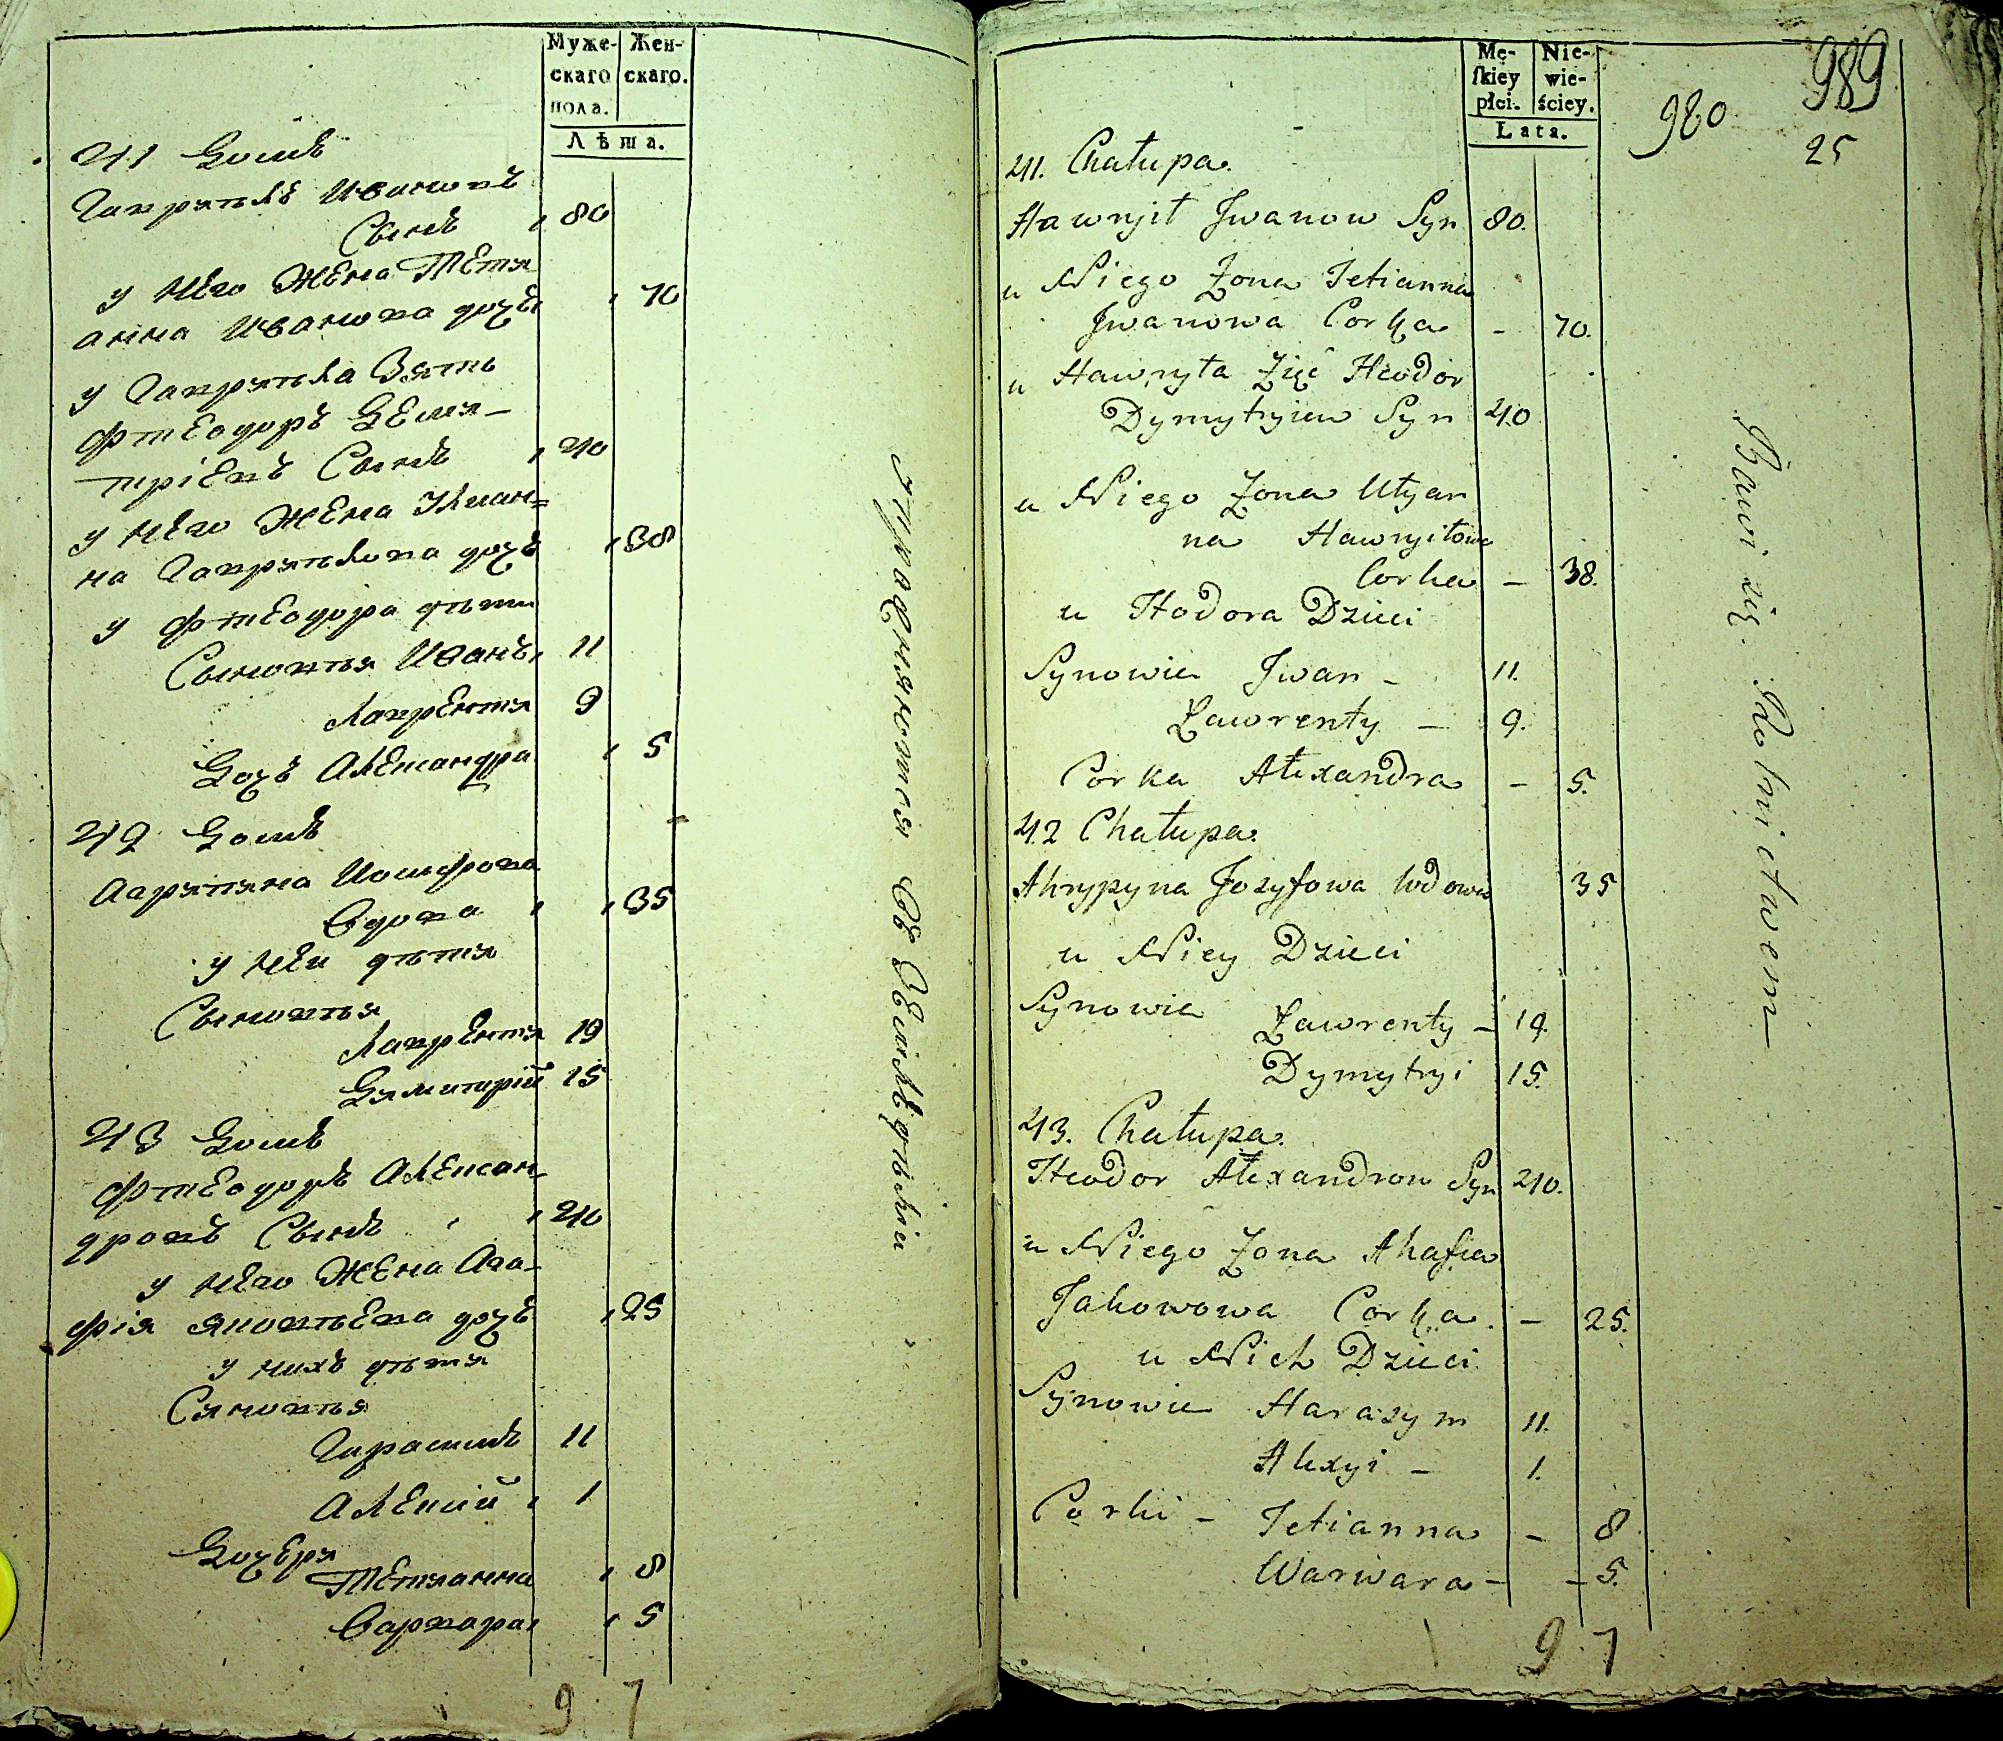 Муже-
скаго
пола.
Жен-
скаго.
Лѣта.
41 Домъ
Гаврыилъ Ивановъ
Сынъ 80
у Него Жена Тетя
анна Иванова дочь 70
у Гаврыила Зять
Фтеодоръ Деми-
тріевъ Сынъ 40
у Него Жена Улиан-
на Гаврыилова дочь 38
у Фтеодора дѣти
Сыновья Иванъ 11
Лаврентя 9
Дочь Александра 5
42 Домъ
Агрыпина Иосифова
Вдова 35
у Неи дѣтя
Сыновья
Лаврентя 19
Дямитрій 15
43 Домъ
Фтеодоръ Алексан-
дровъ Сынъ 40
у Него Жена Ага-
фія Яковлева дочь 25
у Нихъ дѣтя
Сяновья
Гарасимъ 11
Алексій 1
Дочеря
Тетянна 8
Варвара 5
9 7
упражняются въ Земледѣліи
Mę-
ſkiey
płci.
Nie-
wie-
ściey.
Lata.
989
980
25
41. Chałupa.
Hawryił Jwanow Syn 80.
u Niego Żona Tetianna
Jwanowa Corka - 70.
u Hawryła Zięć Fteodor
Dymytryiew Syn 40
u Niego Żona Ulyan
na Hawryiłowa
Corka - 38.
u Ftodora Dzieci
Synowie Jwan - 11.
Ławrenty - 9.
Corka Alexandra - 5.
42 Chałupa.
Ahrypyna Jozyfowa Wdowa 35
u Niey Dzieci
Synowie Ławrenty - 19.
Dymytryi 15.
43. Chałupa.
Fteodor Alexandrow Syn 40.
u Niego Żona Ahafia
Jakowowa Corka. - 25.
u Nich Dzieci
Synowie Harasym 11.
Alexyi - 1.
Corki - Tetianna - 8
Warwara - - 5.
9 7
Bawi się Rolnictwem